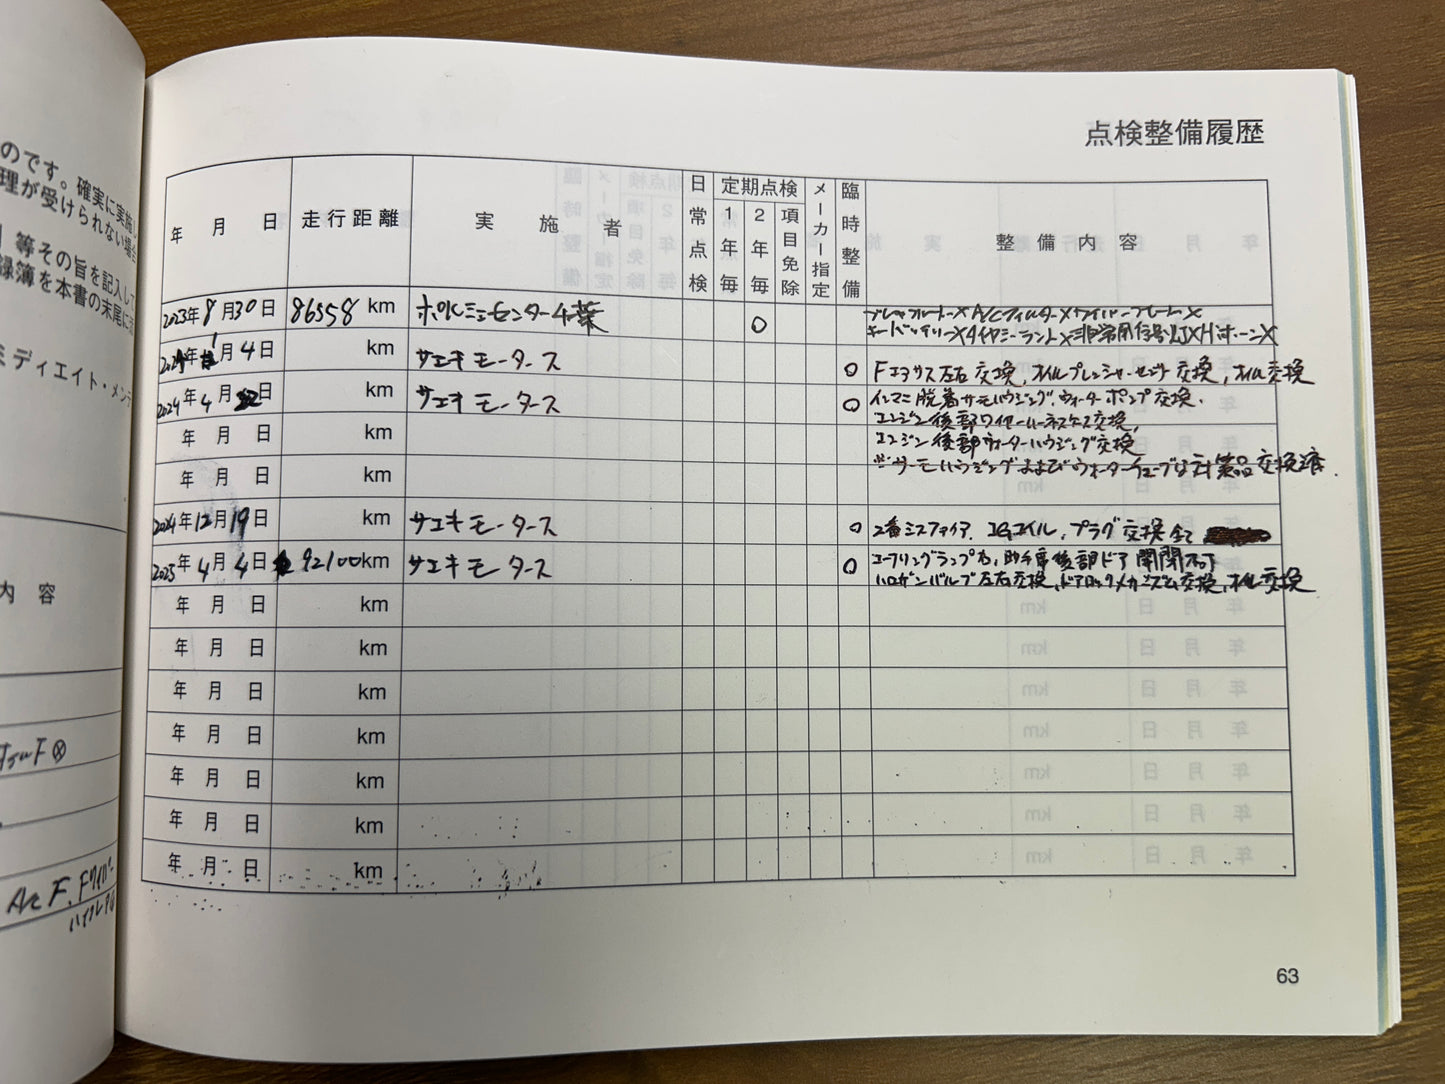 のです。確実に実施し
理が受けられない場合
等その旨を記入して
録簿を本書の末尾に
ミディエイト・メンテ
内 容
F ⊗
Ac F. Fワイパー
点検整備履歴
年 月 日 走行距離 実施者 日常点検 定期点検 1年毎 2年毎 項目免除 メーカー指定 臨時整備 整備内容
2023年8月30日 86558 km ポルシェセンター千葉 ○ ブレーキフルード× A/Cフィルター× ワイパーブレード×
キーバッテリー× タイヤシーラント× 非常用信号灯× Hiホーン×
2024年1月4日 km サエキモータース ○ Fエアサス左右交換,オイルプレッシャーセンサ交換,オイル交換
2024年4月22日 km サエキモータース ○ インマニ脱着サーモハウジング,ウォーターポンプ交換.
年 月 日 km エンジン後部ワイヤーハーネスケース交換,
エンジン後部ウォーターハウジング交換
年 月 日 km ※サーモハウジングおよびウォーターチューブは対策品交換済.
2024年12月19日 km サエキモータース ○ 2番ミスファイア. IGコイル,プラグ交換全て
2025年4月4日 92100km サエキモータース ○ エーフリングランプ右,助手席後部ドア開閉不可
ハロゲンバルブ左右交換,ドアロックメカニズム交換,オイル交換
年 月 日 km
年 月 日 km
年 月 日 km
年 月 日 km
年 月 日 km
年 月 日 km
年 月 日 km
63